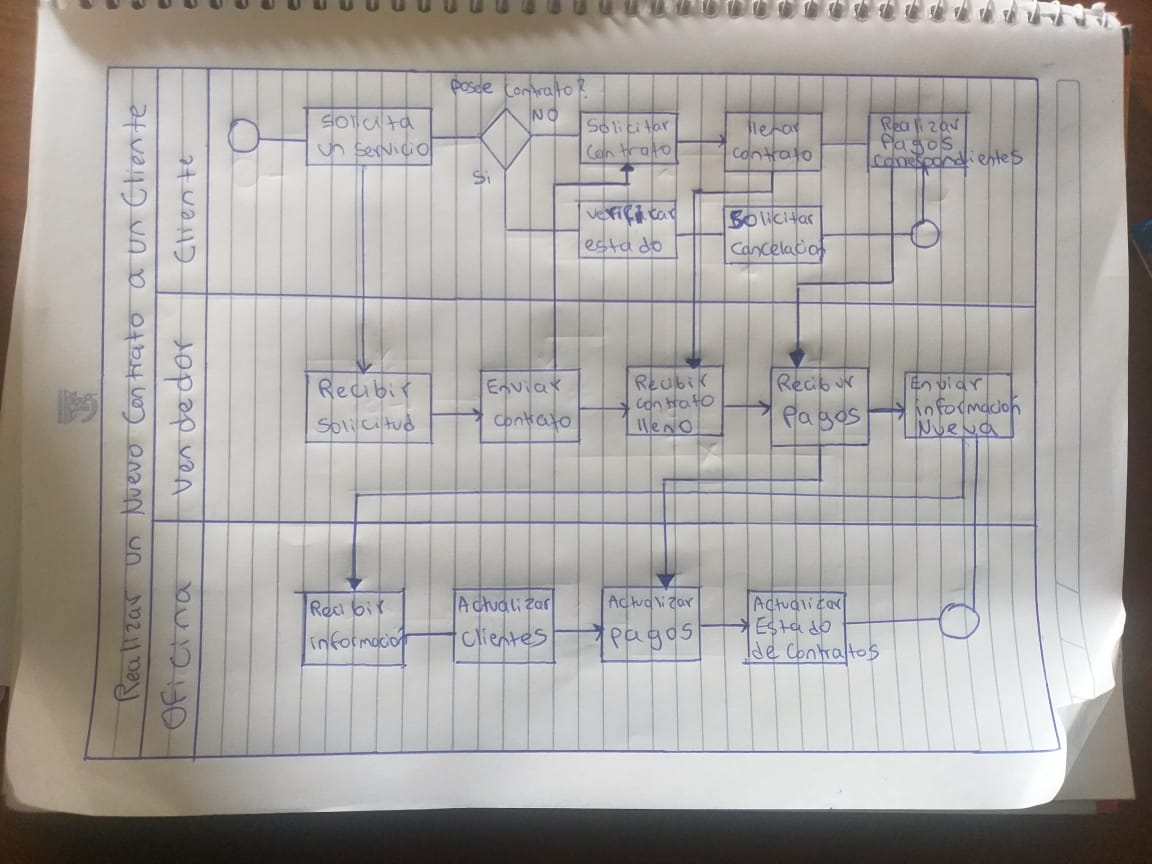 Realizar un Nuevo Contrato a un Cliente
Cliente
Solicita
un servicio
posee contrato?
NO
Si
Solicitar
contrato
llenar
contrato
Realizar
Pagos
correspondientes
verificar
estado
Solicitar
cancelacion
Vendedor
Recibir
Solicitud
Enviar
contrato
Recibir
contrato
lleno
Recibir
pagos
Enviar
información
Nueva
Oficina
Recibir
información
Actualizar
clientes
Actualizar
pagos
Actualizar
Estado
de contratos